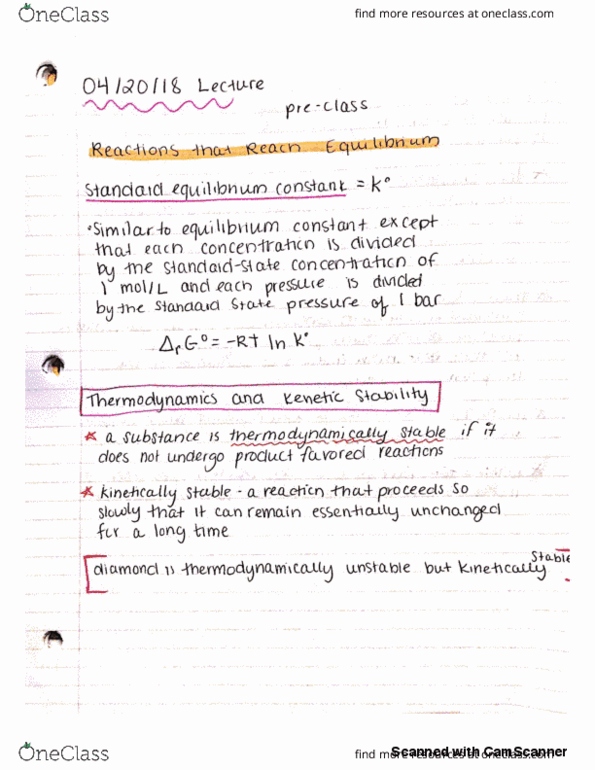 OneClass
find more resources at oneclass.com
04/20/18 Lecture
pre-class
Reactions that Reach Equilibrium
Standard equilibrium constant = K°
•Similar to equilibrium constant except
that each concentration is divided
by the standard-state concentration of
1 mol/L and each pressure is divided
by the standard state pressure of 1 bar
ΔrG° = -RT ln K°
Thermodynamics and Kenetic Stability
* a substance is thermodynamically stable if it
does not undergo product favored reactions
* kinetically stable - a reaction that proceeds so
slowly that it can remain essentially unchanged
for a long time
diamond is thermodynamically unstable but kinetically stable
OneClass
find more resources at oneclass.com
Scanned with CamScanner